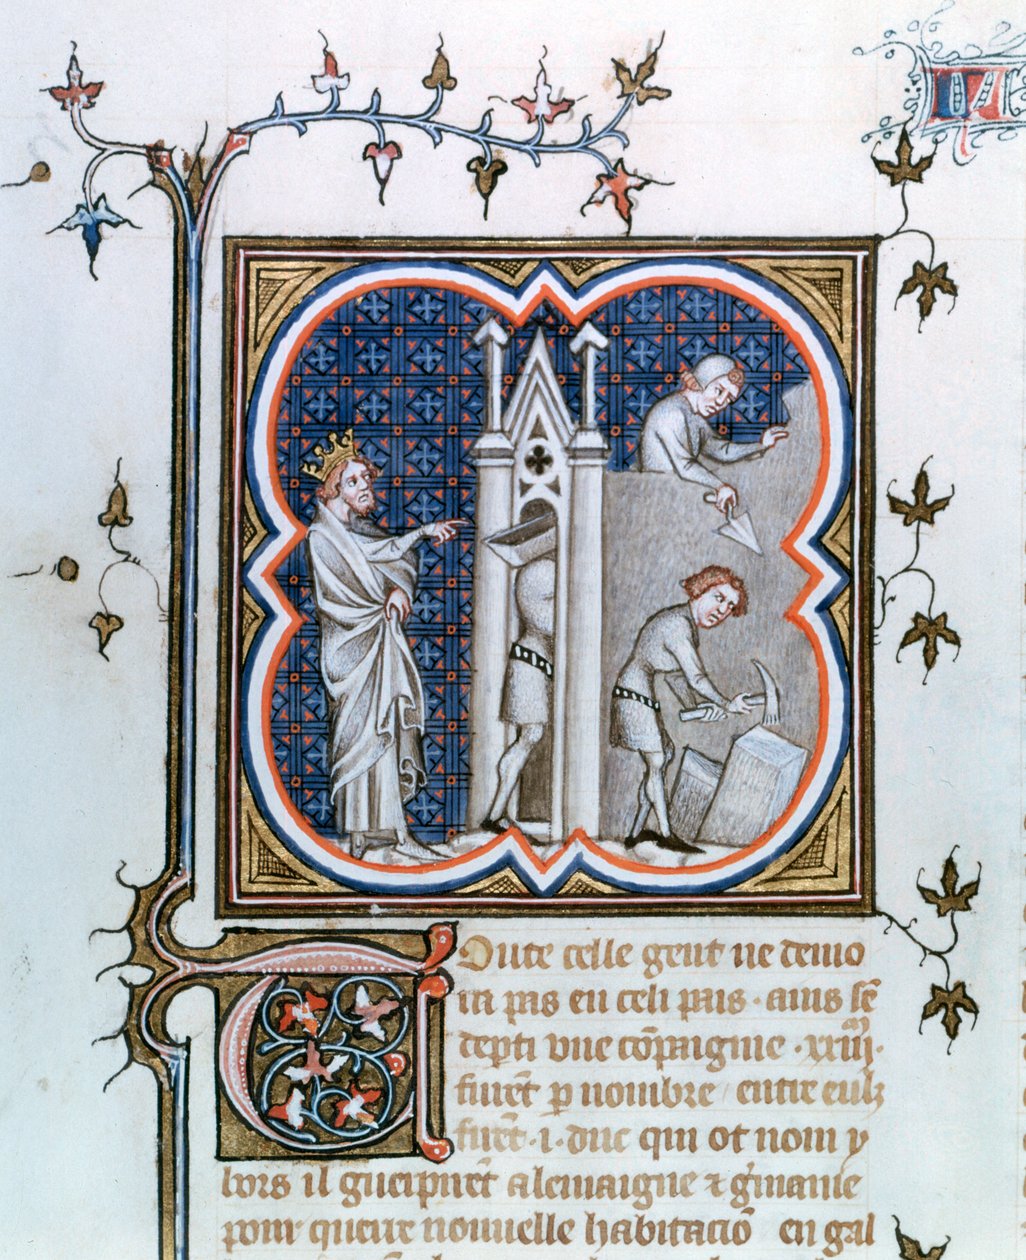 Oute celle gent ne demo
ra pas en celi pais · ains sē
depti vne cōpaignie · xxiiij ·
furēt p nombre entre eulz
furēt · i · duc qui ot nom y
bors il guerpirēt alemaigne ⁊ g̾manie
pour querre nouuelle habitaciō en gal